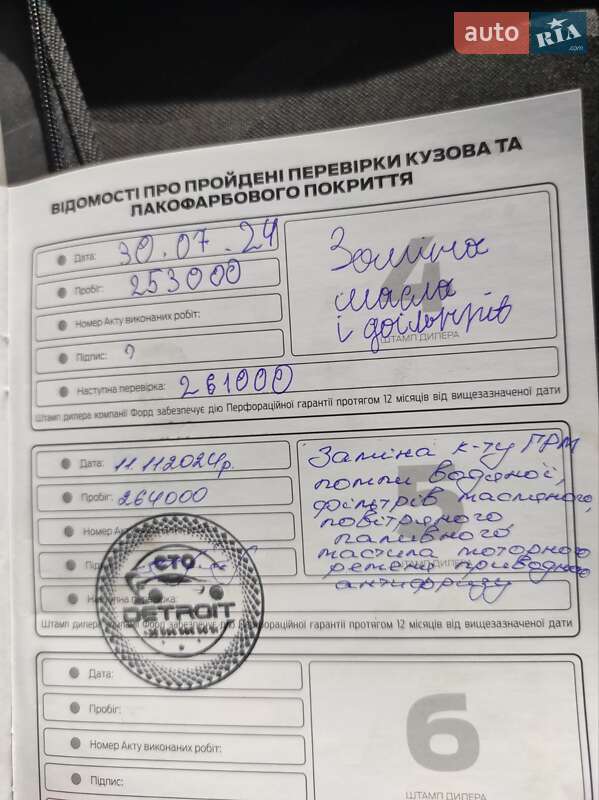 auto RIA .com
ВІДОМОСТІ ПРО ПРОЙДЕНІ ПЕРЕВІРКИ КУЗОВА ТА
ЛАКОФАРБОВОГО ПОКРИТТЯ
Дата: 30.07.24
Пробіг: 253000
Номер Акту виконаних робіт:
Підпис:
Наступна перевірка: 261000
4
Заміна
масла
і фільтрів
ШТАМП ДИЛЕРА
Штамп дилера компанії Форд забезпечує дію Перфораційної гарантії протягом 12 місяців від вищезазначеної дати
Дата: 11.11.2024р.
Пробіг: 264000
Номер Акту
Підпис
Наступна перевірка:
5
Заміна к-ту ГРМ
помпи водяної,
фільтрів масляного,
повітряного,
паливного,
мастила моторного
ременя приводного
антифризу
ШТАМП ДИЛЕРА
СТО
DETROIT
Штамп дилера компанії Форд забезпечує дію Перфораційної гарантії протягом 12 місяців від вищезазначеної дати
Дата:
Пробіг:
Номер Акту виконаних робіт:
Підпис:
6
ШТАМП ДИЛЕРА